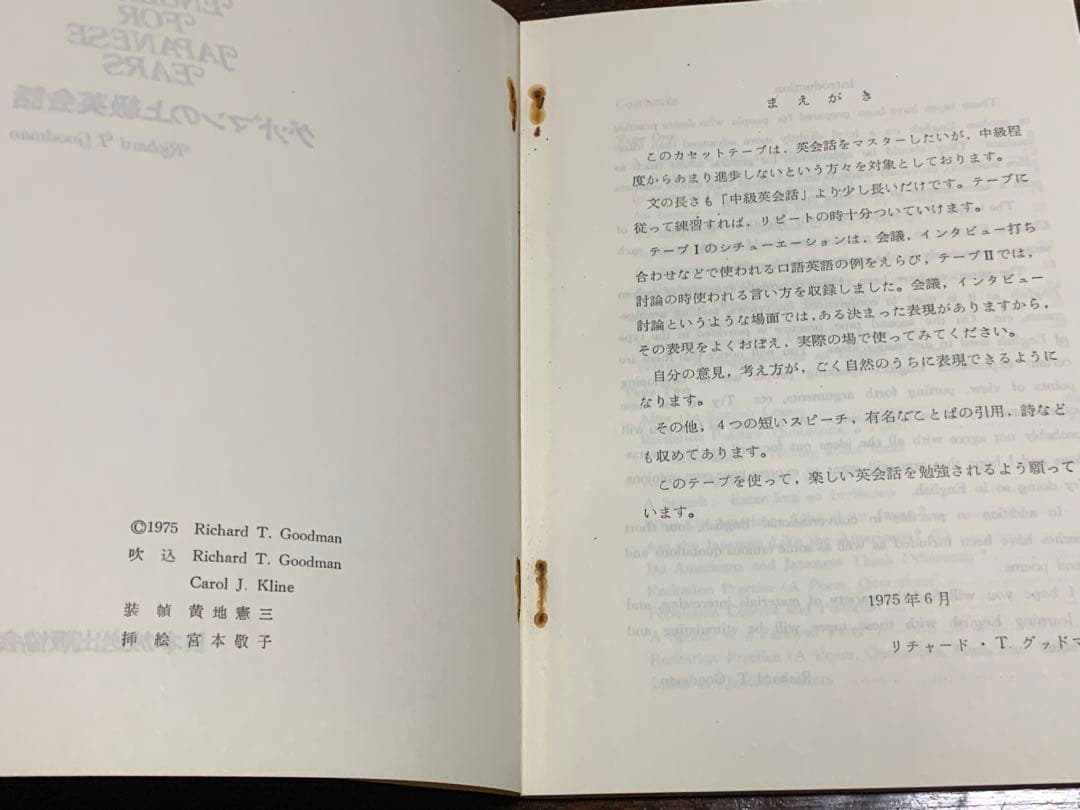 ©1975 Richard T. Goodman
吹込 Richard T. Goodman
Carol J. Kline
装幀 黄地憲三
挿絵 宮本敬子
まえがき
このカセットテープは，英会話をマスターしたいが，中級程
度からあまり進歩しないという方々を対象としております。
文の長さも「中級英会話」より少し長いだけです。テープに
従って練習すれば，リピートの時十分ついていけます。
テープⅠのシチューエーションは，会議，インタビュー打ち
合わせなどで使われる口語英語の例をえらび，テープⅡでは，
討論の時使われる言い方を収録しました。会議，インタビュー
討論というような場面では，ある決まった表現がありますから，
その表現をよくおぼえ，実際の場で使ってみてください。
自分の意見，考え方が，ごく自然のうちに表現できるように
なります。
その他，4つの短いスピーチ，有名なことばの引用，詩など
も収めてあります。
このテープを使って，楽しい英会話を勉強されるよう願って
います。
1975年6月
リチャード・T. グッドマ